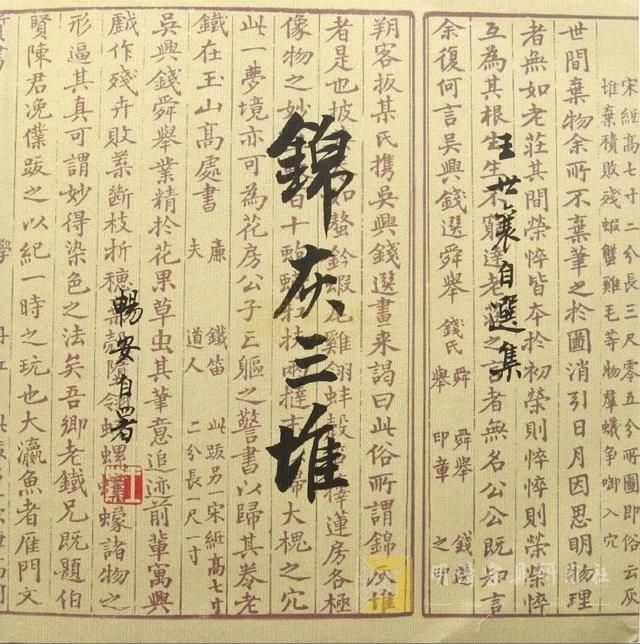 錦灰三堆
王世襄自選集
暢安自署
宋紙高七寸二分長三尺零五分所圖即俗云灰
堆棄積敗殘蝦蟹雞毛等物羣蟻爭啣入穴
世間棄物余所不棄筆之於圖消引日月因思明物理
者無如老莊其間榮悴皆本於初榮則悴悴則榮榮悴
互為其根生生不窮達老莊之言者無名公公既知言
余復何言吳興錢選舜舉 錢氏 舜舉 錢選
舉 印章 之印
朔客扳某氏携吳興錢選畫来謁曰此俗所謂錦灰堆
者是也披 如螯鈐蝦 雞翎蚌殼 蓮房各極
像物之妙 百十 大槐之穴
此一夢境亦可為花房公子三軀之警書以歸其券老
鐵在玉山高處書 廉 鐵笛 此跋另一宋紙高七寸
夫 道人 二分長一尺一寸
吳興錢舜舉業精於花果草虫其筆意追迹前輩寓興
戲作殘卉敗葉斷枝折穗 殼墮翎 螺 蠓諸物之
形逼其真可謂妙得染色之法矣吾鄉老鐵兄既題伯
賢陳君俛僕跋之以紀一時之玩也大瀛魚者雁門文